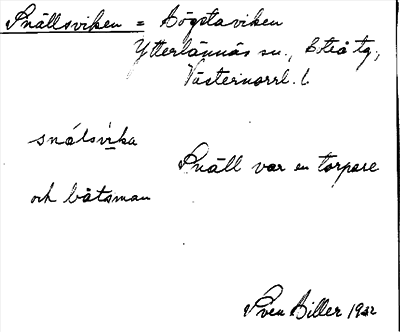 Snällsviken = Bögstaviken
Ytterlännäs sn.,
Västernorrl. l
snálsvika
Snäll var en torpare
och båtsman
Sven Biller 1932